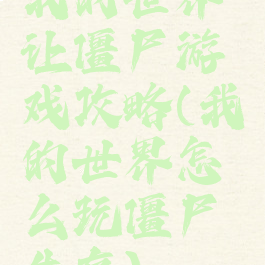 我的世界
让僵尸游
戏攻略(我
的世界怎
么玩僵尸